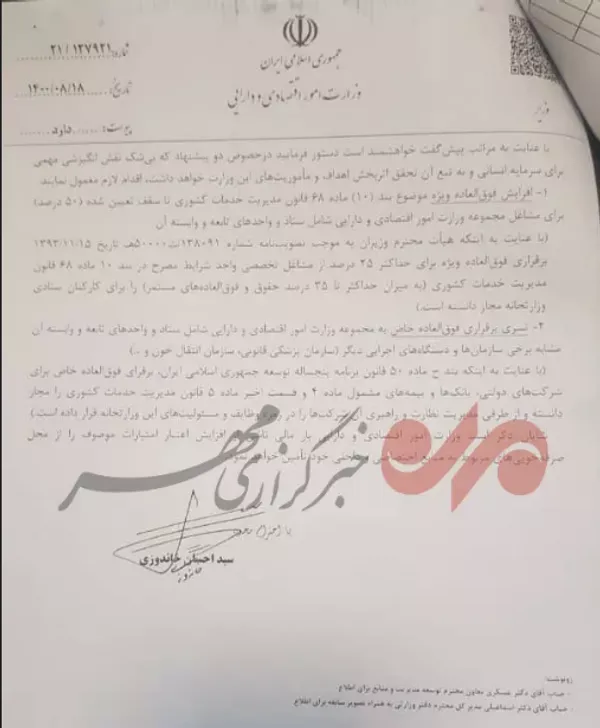 جمهوری اسلامی ایران
وزارت امور اقتصادی و دارایی
شماره: ۲۱/۱۲۷۹۲۱
تاریخ: ۱۴۰۰/۰۸/۱۸
پیوست: دارد
وزیر
با عنایت به مراتب پیش‌گفت خواهشمند است دستور فرمایید درخصوص دو پیشنهاد که بی‌شک نقش انگیزشی مهمی
برای سرمایه انسانی و به تبع آن تحقق اثربخش اهداف و مأموریت‌های این وزارت خواهد داشت، اقدام لازم معمول نمایند
۱- افزایش فوق‌العاده ویژه موضوع بند (۱۰) ماده ۶۸ قانون مدیریت خدمات کشوری تا سقف تعیین شده (۵۰ درصد)
برای مشاغل مجموعه وزارت امور اقتصادی و دارایی شامل ستاد و واحدهای تابعه و وابسته آن
(با عنایت به اینکه هیأت محترم وزیران به موجب تصویب‌نامه شماره ۱۳۸۰۹۱/ت۵۰۰۰۰هـ تاریخ ۱۳۹۳/۱۱/۱۵
برقراری فوق‌العاده ویژه برای حداکثر ۲۵ درصد از مشاغل تخصصی واجد شرایط مصرح در بند ۱۰ ماده ۶۸ قانون
مدیریت خدمات کشوری (به میزان حداکثر تا ۳۵ درصد حقوق و فوق‌العاده‌های مستمر) را برای کارکنان ستادی
وزارتخانه مجاز دانسته است.)
۲- تسری برقراری فوق‌العاده خاص به مجموعه وزارت امور اقتصادی و دارایی شامل ستاد و واحدهای تابعه و وابسته آن
مشابه برخی سازمان‌ها و دستگاه‌های اجرایی دیگر (سازمان پزشکی قانونی، سازمان انتقال خون و ..)
(با عنایت به اینکه بند ح ماده ۵۰ قانون برنامه پنجساله توسعه جمهوری اسلامی ایران، برقرای فوق‌العاده خاص برای
شرکت‌های دولتی، بانک‌ها و بیمه‌های مشمول ماده ۴ و قسمت اخیر ماده ۵ قانون مدیریت خدمات کشوری را مجاز
دانسته و از طرفی مدیریت نظارت و راهبری آن شرکت‌ها را در زمره وظایف و مسئولیت‌های این وزارتخانه قرار داده است.)
شایان ذکر است وزارت امور اقتصادی و دارایی بار مالی افزایش اعتبار امتیازات موصوف را از محل
صرفه‌جویی‌های مربوط به منابع اختصاصی خود تأمین خواهد نمود.
خبرگزاری مهر
با احترام
سید احسان خاندوزی
رونوشت:
- جناب آقای دکتر عسکری معاون محترم توسعه مدیریت و منابع برای اطلاع
- جناب آقای دکتر اسماعیلی مدیر کل محترم دفتر وزارتی به همراه تصویر سابقه برای اطلاع